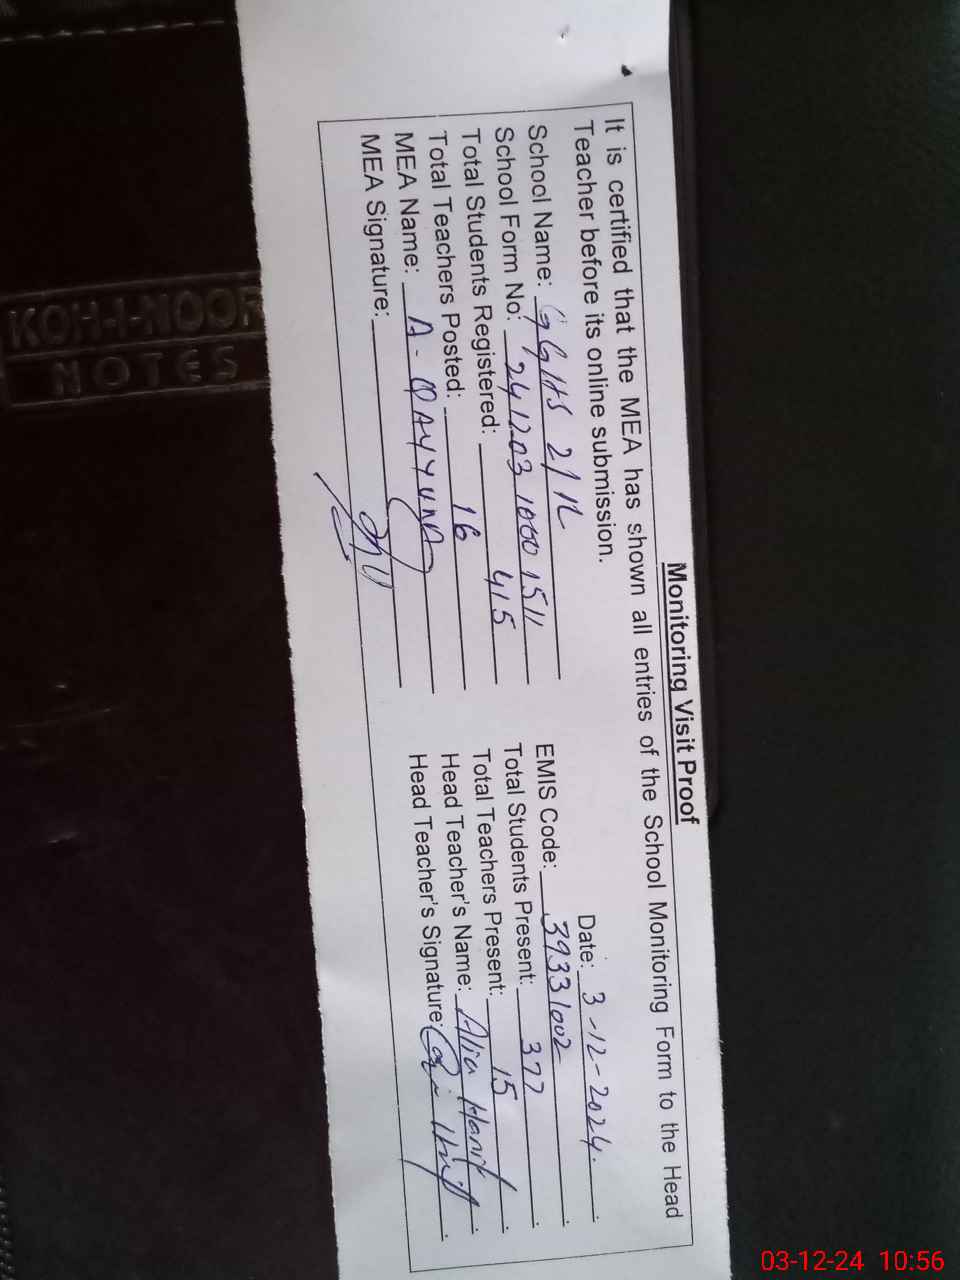 Monitoring Visit Proof
It is certified that the MEA has shown all entries of the School Monitoring Form to the Head
Teacher before its online submission.
Date: 3-12-2024.
School Name: GGHS 21 12
EMIS Code: 39331002
School Form No: 241203 1000 1511
Total Students Present: 377
Total Students Registered: 415
Total Teachers Present: 15
Total Teachers Posted: 16
Head Teacher's Name: Alia Hanif
MEA Name: A-QAYYUM
Head Teacher's Signature:
MEA Signature:
KOH-I-NOOR
NOTES
03-12-24 10:56